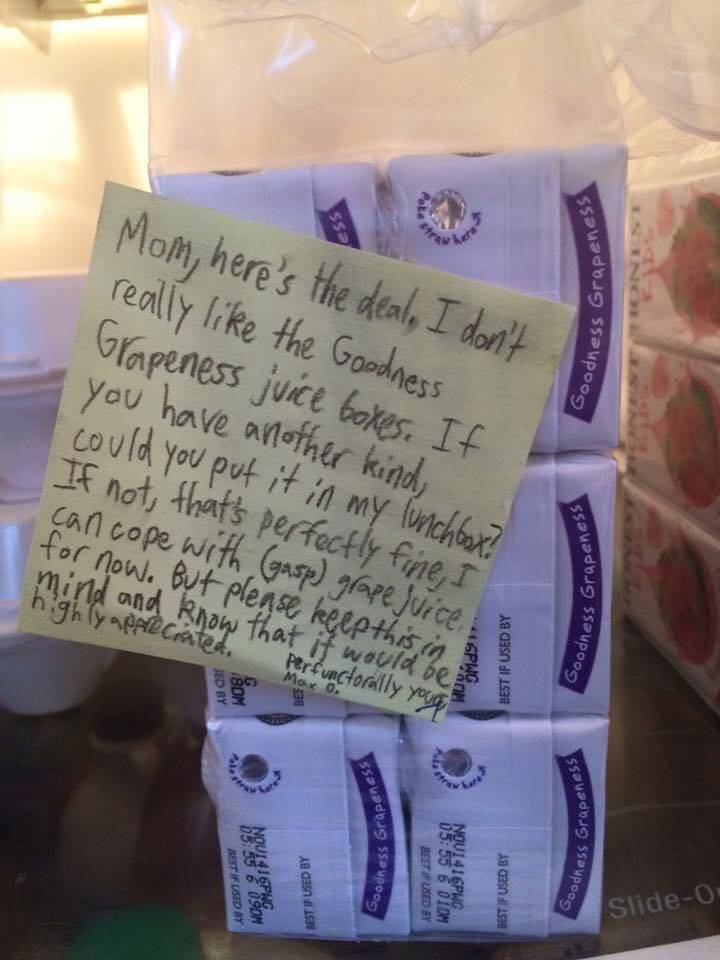 Mom, here's the deal. I don't
really like the Goodness
Grapeness juice boxes. If
you have another kind,
could you put it in my lunchbox?
If not, that's perfectly fine, I
can cope with (gasp) grape juice
for now. But please keep this in
mind and know that it would be
highly appreciated.
perfunctorally yours
Max O.
ess
Poke straw here
Goodness Grapeness
HONEST
KIDS
HONEST
KIDS
HONEST
Goodness Grapeness
16PWG
BEST IF USED BY
Poke straw here
Goodness Grapeness
NOV1416PWG
05:55 6 09DM
BEST IF USED BY
BEST IF USED BY
Poke straw here
Goodness Grapeness
NOV1416PWG
05:55 6 01DM
BEST IF USED BY
BEST IF USED BY
Slide-O